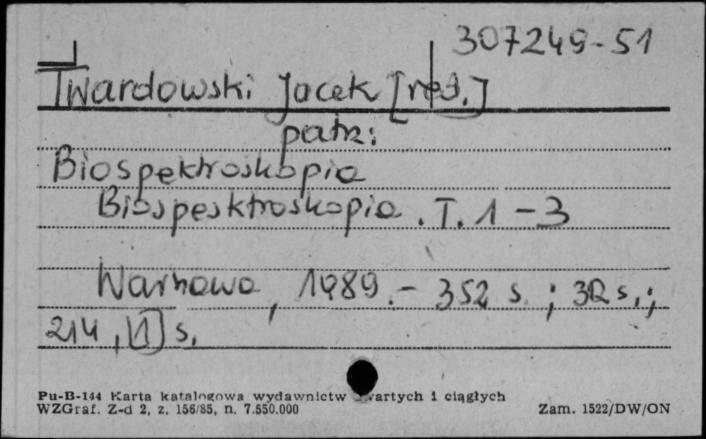 307249-51
Twardowski Jacek [red.]
patrz:
Biospektroskopia
Biospesktroskopia. T. 1-3
Warszawa, 1989.- 352 s. ; 30 s.;
214, [1] s.
Pu-B-144 Karta katalogowa wydawnictw zwartych i ciągłych
WZGraf. Z-d 2, z. 156/85, n. 7.550.000
Zam. 1522/DW/ON